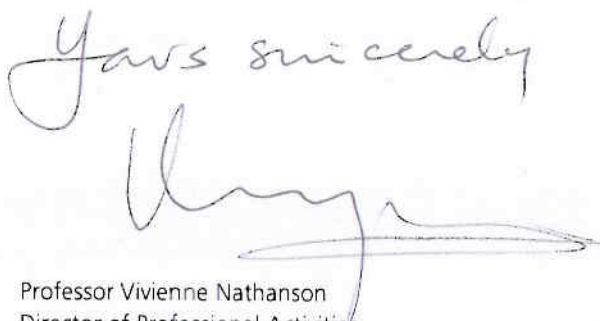 Yours sincerely
Professor Vivienne Nathanson
Director of Professional Activities